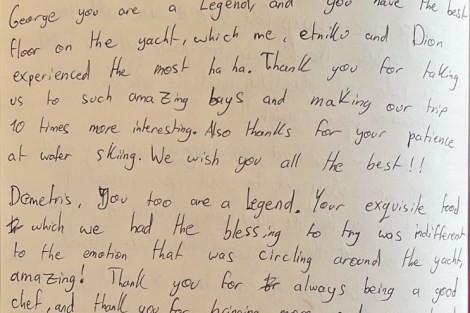 George you are a Legend, and you have the best
floor on the yacht, which me, etnikv and Dion
experienced the most ha ha. Thank you for taking
us to such amazing bays and making our trip
10 times more interesting. Also thanks for your patience
at water skiing. We wish you all the best!!
Demetris, you too are a Legend. Your exquisite food
which we had the blessing to try was indifferent
to the emotion that was circling around the yacht,
amazing! Thank you for always being a good
chef, and thank you for bringing more